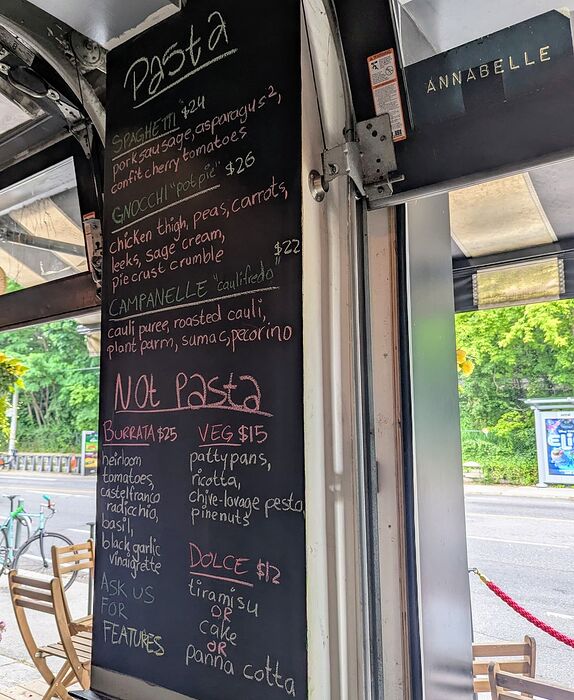 Pasta
SPAGHETTI $24
pork sausage, asparagus²,
confit cherry tomatoes
GNOCCHI "pot pie" $26
chicken thigh, peas, carrots,
leeks, sage cream,
pie crust crumble
$22
CAMPANELLE "caulifredo"
cauli puree, roasted cauli,
plant parm, sumac, pecorino
NOt Pasta
BURRATA $25
heirloom
tomatoes,
castelfranco
radicchio,
basil,
black garlic
vinaigrette
ASK US
FOR
FEATURES
VEG $15
pattypans,
ricotta,
chive-lovage pesto,
pinenuts
DOLCE $12
tiramisu
OR
cake
OR
panna cotta
ANNABELLE